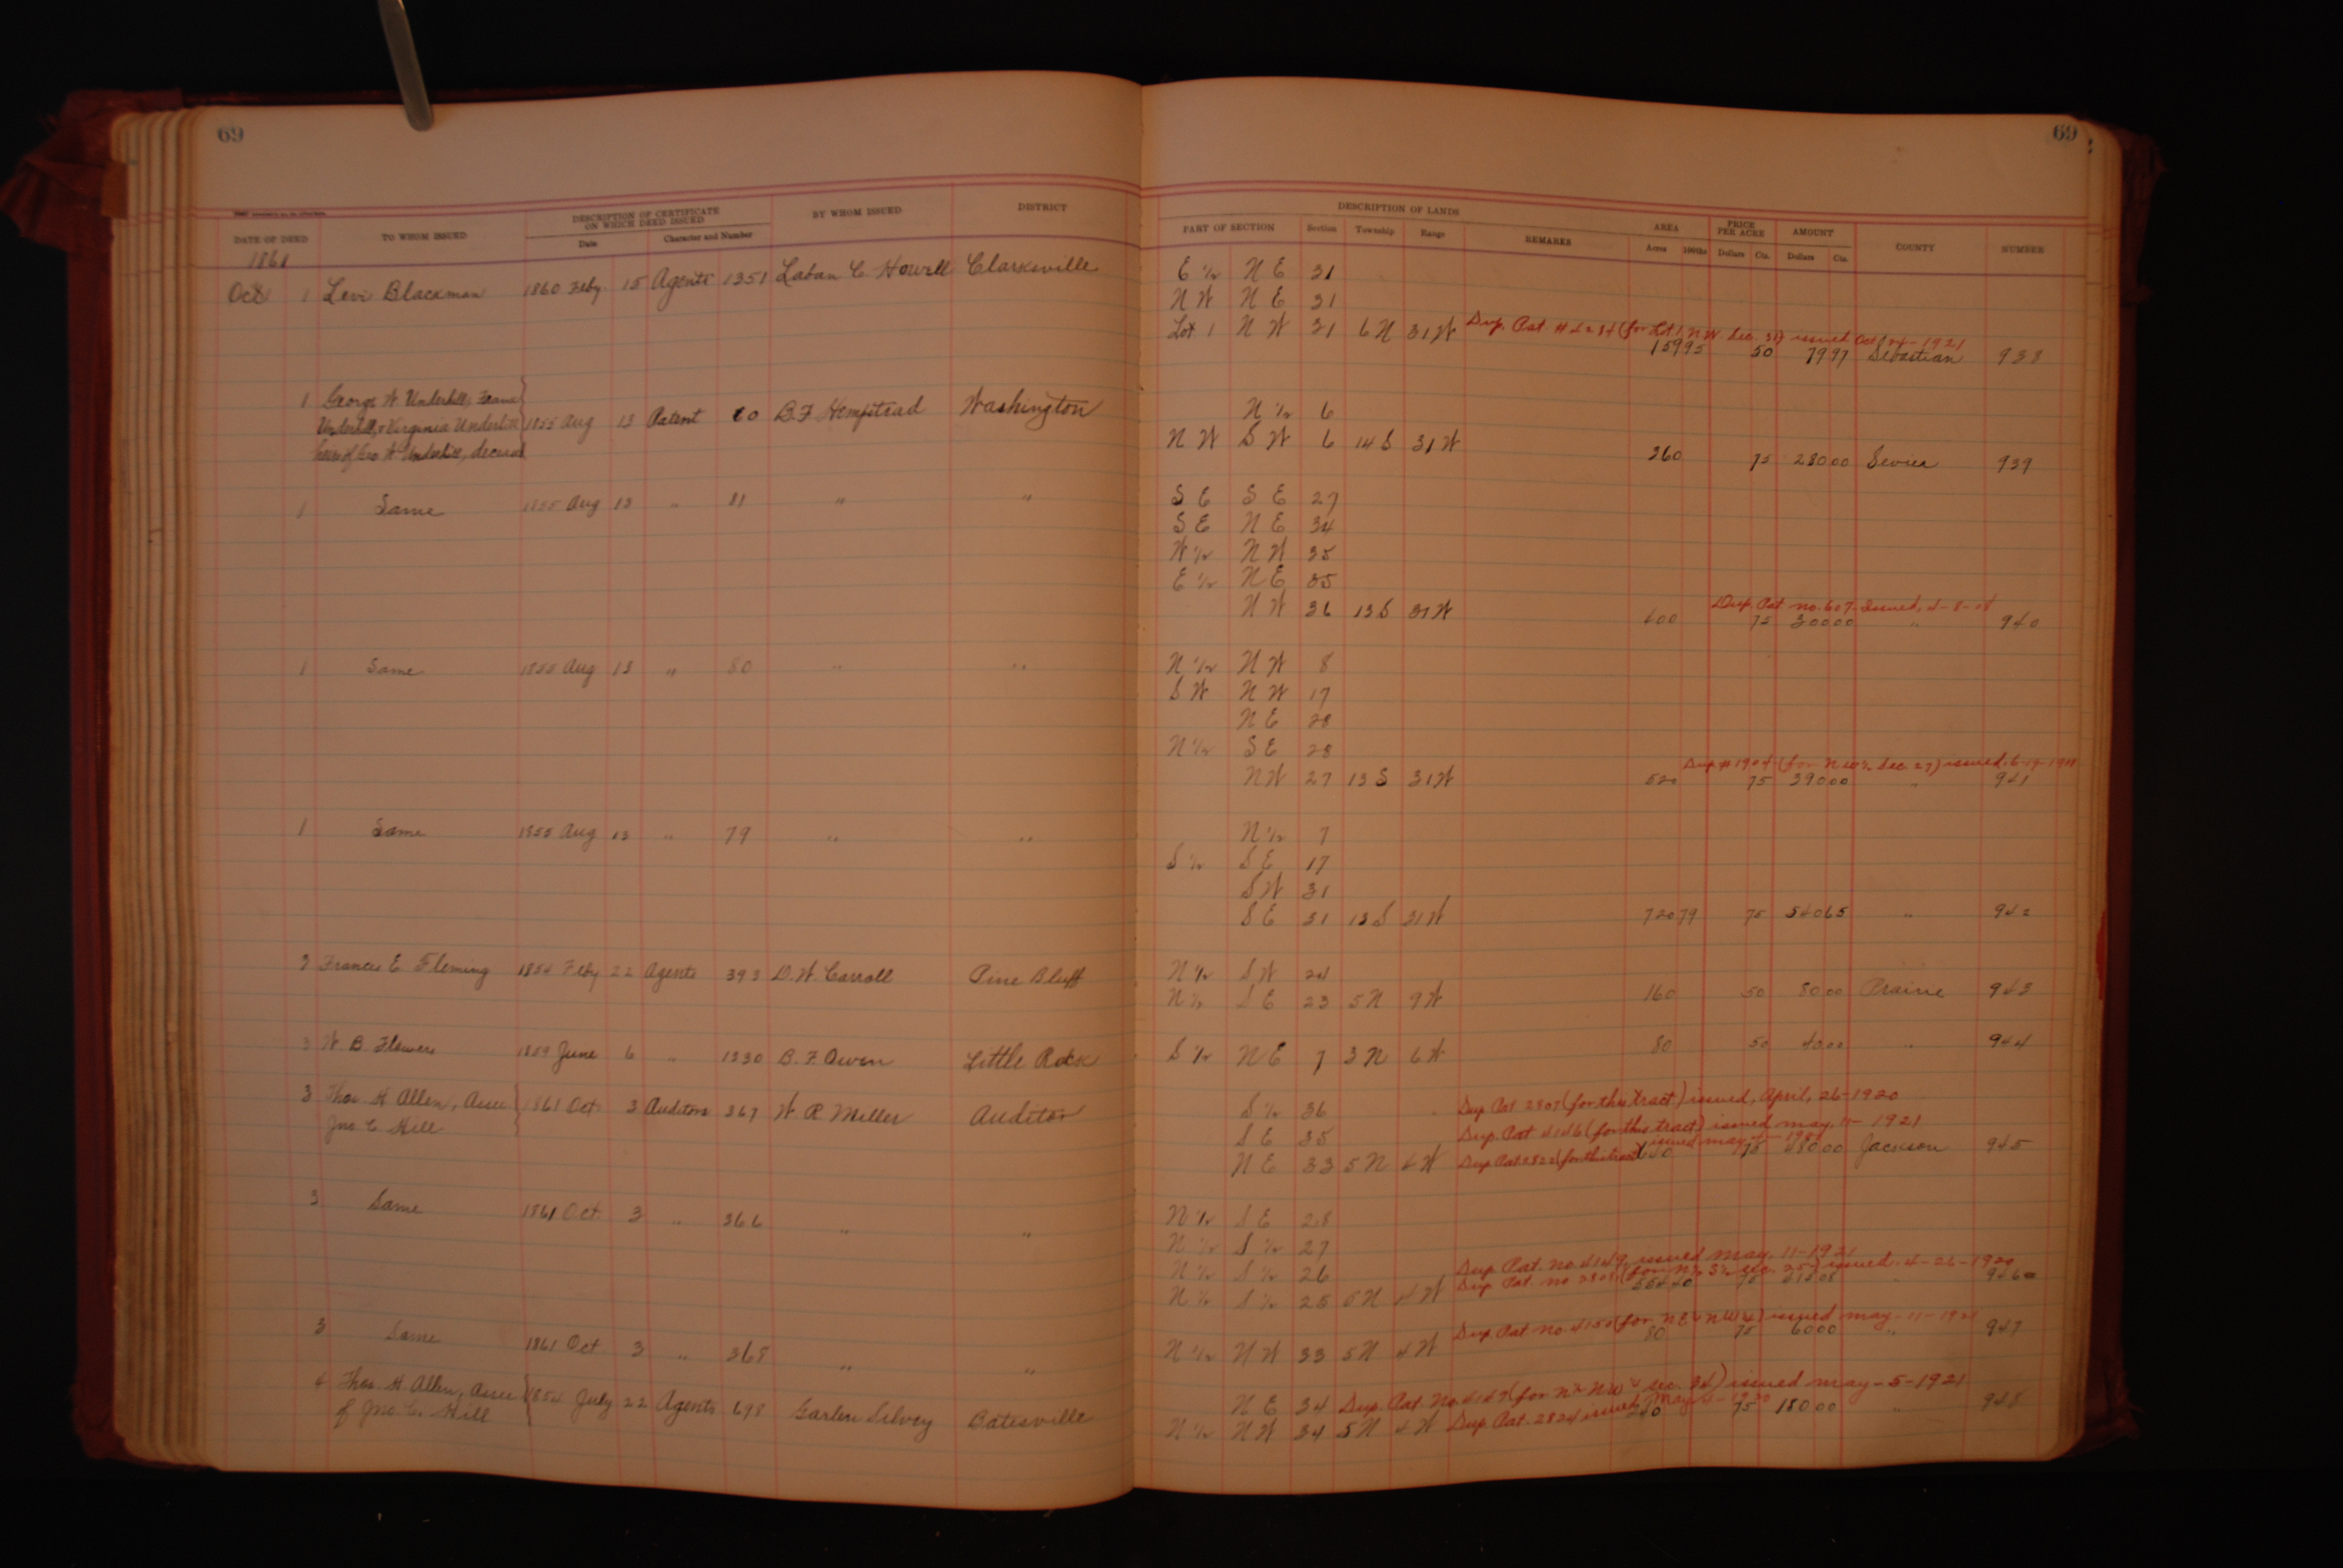 69 69
DATE OF DEED TO WHOM ISSUED DESCRIPTION OF CERTIFICATE ON WHICH DEED ISSUED Date Character and Number BY WHOM ISSUED DISTRICT DESCRIPTION OF LANDS PART OF SECTION Section Township Range REMARKS AREA Acres 100ths PRICE PER ACRE Dollars Cts. AMOUNT Dollars Cts. COUNTY NUMBER
1861
Oct 1 Levi Blackman 1860 Feby 15 Agents 1351 Laban C. Howell Clarksville E 1/2 N E 31
N W N E 31
Lot 1 N W 31 6 N 31 W Dup. Pat. # 4234 (for Lot 1, N W Sec. 31) issued Oct 24-1921
159 95 50 79 97 Sebastian 938
1 George W Underhill,
Underhill, & Virginia Underhill 1855 Aug 13 Patent B. F. Hempstead Washington N 1/2 6
heirs of Geo W Underhill, deceased N W S W 6 14 S 31 W
360 75 280 00 Sevier 939
1 Same 1855 Aug 13 " 81 " " S E S E 27
S E N E 34
W 1/2 N W 35
E 1/2 N E 35
N W 36 13 S 31 W Dup. Pat. no. 607. Issued, 4-8-08
400 75 300 00 " 940
1 Same 1855 Aug 13 " 80 " " N 1/2 N W 8
S W N W 17
N E 28
N 1/2 S E 28
N W 27 13 S 31 W Dup # 1904 (for N W 1/4 Sec. 27) issued, 6-19-1911
520 75 390 00 " 941
1 Same 1855 Aug 13 " 79 " " N 1/2 7
S 1/2 S E 17
S W 31
S E 31 13 S 31 W 720 79 75 540 65 " 942
3 Frances E. Fleming 1854 Feby 22 Agents 393 D. W. Carroll Pine Bluff N 1/2 S W 24
N 1/2 S E 23 5 N 9 W 160 50 80 00 Prairie 943
3 W. B. Flowers 1859 June 6 " 1330 B. F. Owen Little Rock S 1/2 N E 7 3 N 6 W 80 50 40 00 " 944
3 Thos. H Allen, Assee 1861 Oct 3 Auditors 367 W. R. Miller Auditor S 1/2 36 Dup Pat 2807 (for this tract) issued, April, 26-1920
Jno. C. Hill S E 35 Dup. Pat 4146 (for this tract) issued may, 11-1921
N E 33 5 N 4 W Dup Pat 2822 (for this tract) issued may 640 75 480 00 Jackson 945
3 Same 1861 Oct 3 " 366 " " N 1/2 S E 28
N 1/2 S 1/2 27
N 1/2 S 1/2 26 Dup. Pat. no. 4149, issued may, 11-1921
N 1/2 S 1/2 25 5 N 4 W Dup. Pat. no 2808 (for N 1/2 S 1/2 sec. 25) issued 4-26-1920 75 " 946
3 Same 1861 Oct 3 " 368 " " N 1/2 N W 33 5 N 4 W Dup. Pat no. 4150 (for N E 1/4 N W 1/4) issued may-11-1921
80 75 60 00 " 947
4 Thos. H. Allen, Assee 1854 July 22 Agents 698 Garlen Silvey Batesville N E 34 Dup. Pat. No. 4147 (for N 1/2 N W 1/4 sec. 34) issued may-5-1921
of Jno. C. Hill N 1/2 N W 34 5 N 4 W Dup Pat. 2824 issued May 240 75 180 00 " 948